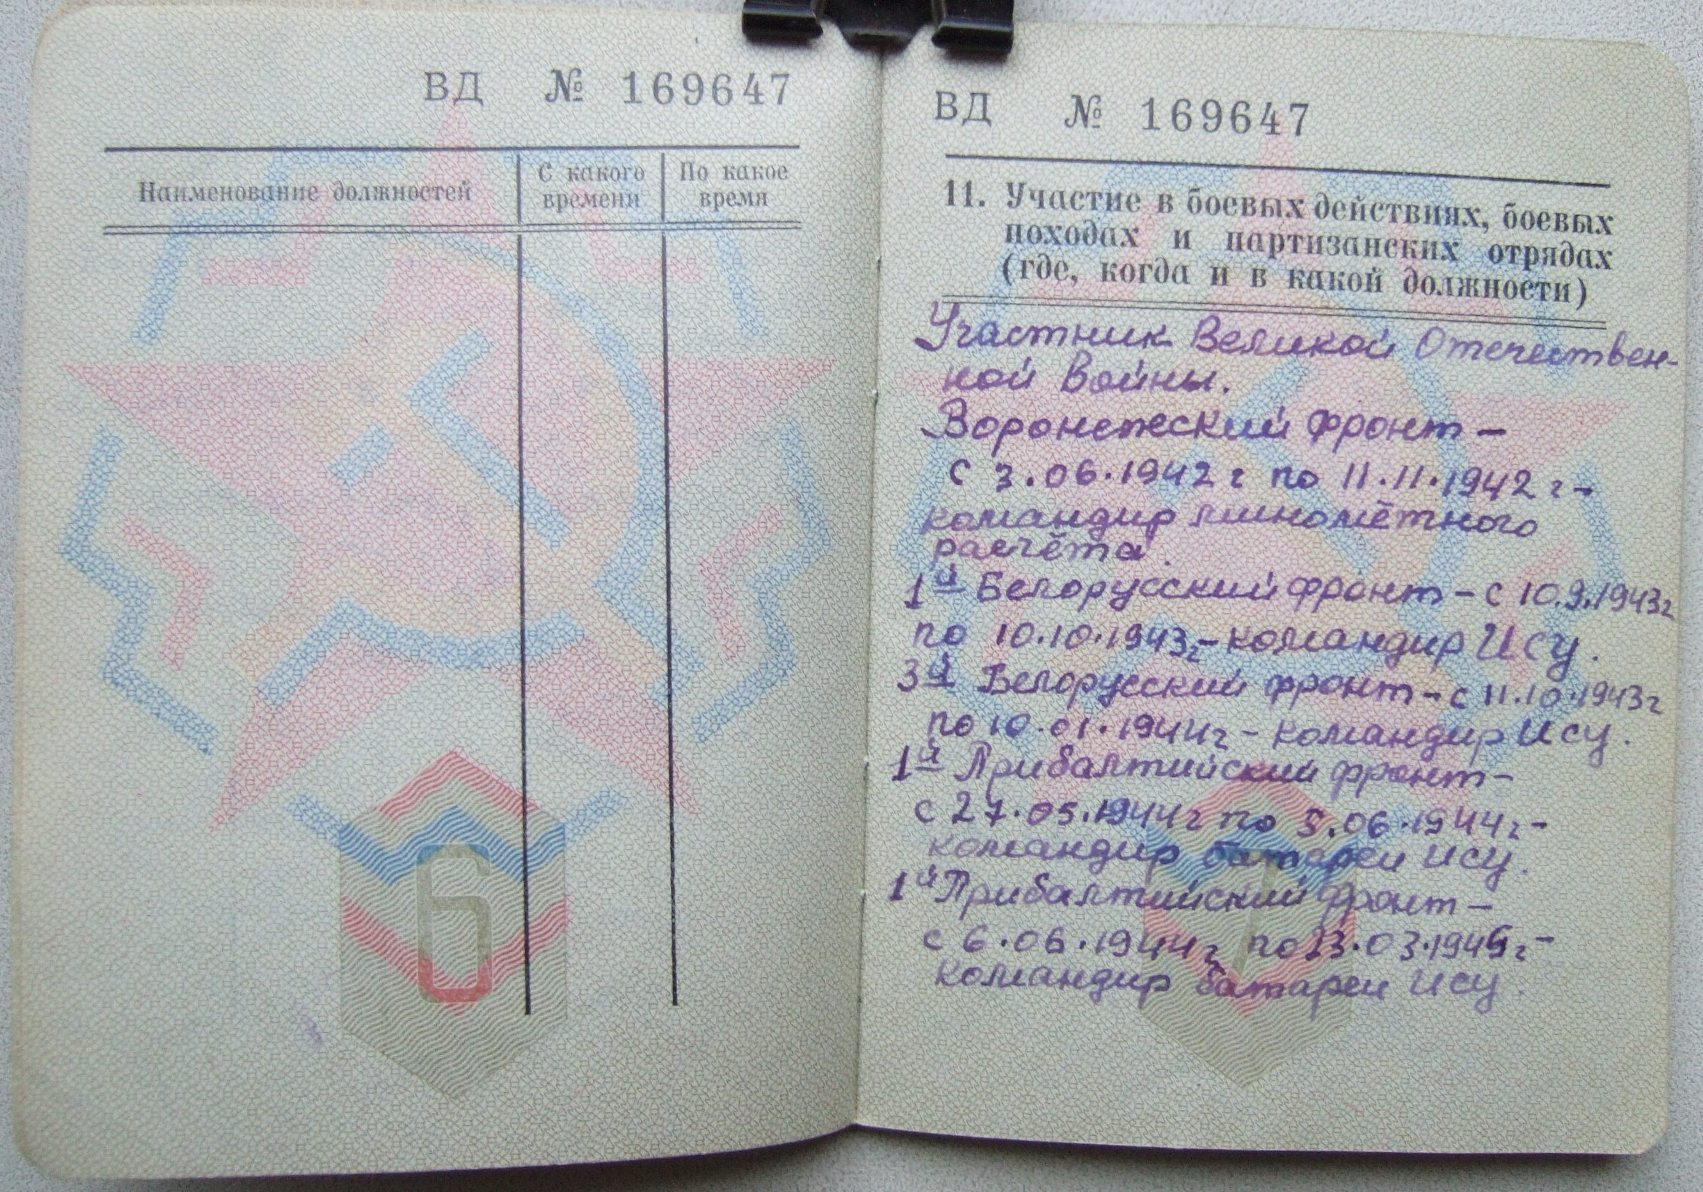 ВД № 169647
Наименование должностей
С какого времени
По какое время
6
ВД № 169647
11. Участие в боевых действиях, боевых
походах и партизанских отрядах
(где, когда и в какой должности)
Участник Великой Отечествен-
ной Войны.
Воронежский фронт –
с 3.06.1942 г по 11.11.1942 г –
командир миномётного
расчёта.
1й Белорусский фронт – с 10.9.1943г
по 10.10.1943г – командир ИСУ.
3й Белорусский фронт – с 11.10.1943г
по 10.01.1944г – командир ИСУ.
1й Прибалтийский фронт –
с 27.05.1944г по 5.06.1944г –
командир батареи ИСУ.
1й Прибалтийский фронт –
с 6.06.1944г по 23.03.1945г –
командир батареи ИСУ.
7